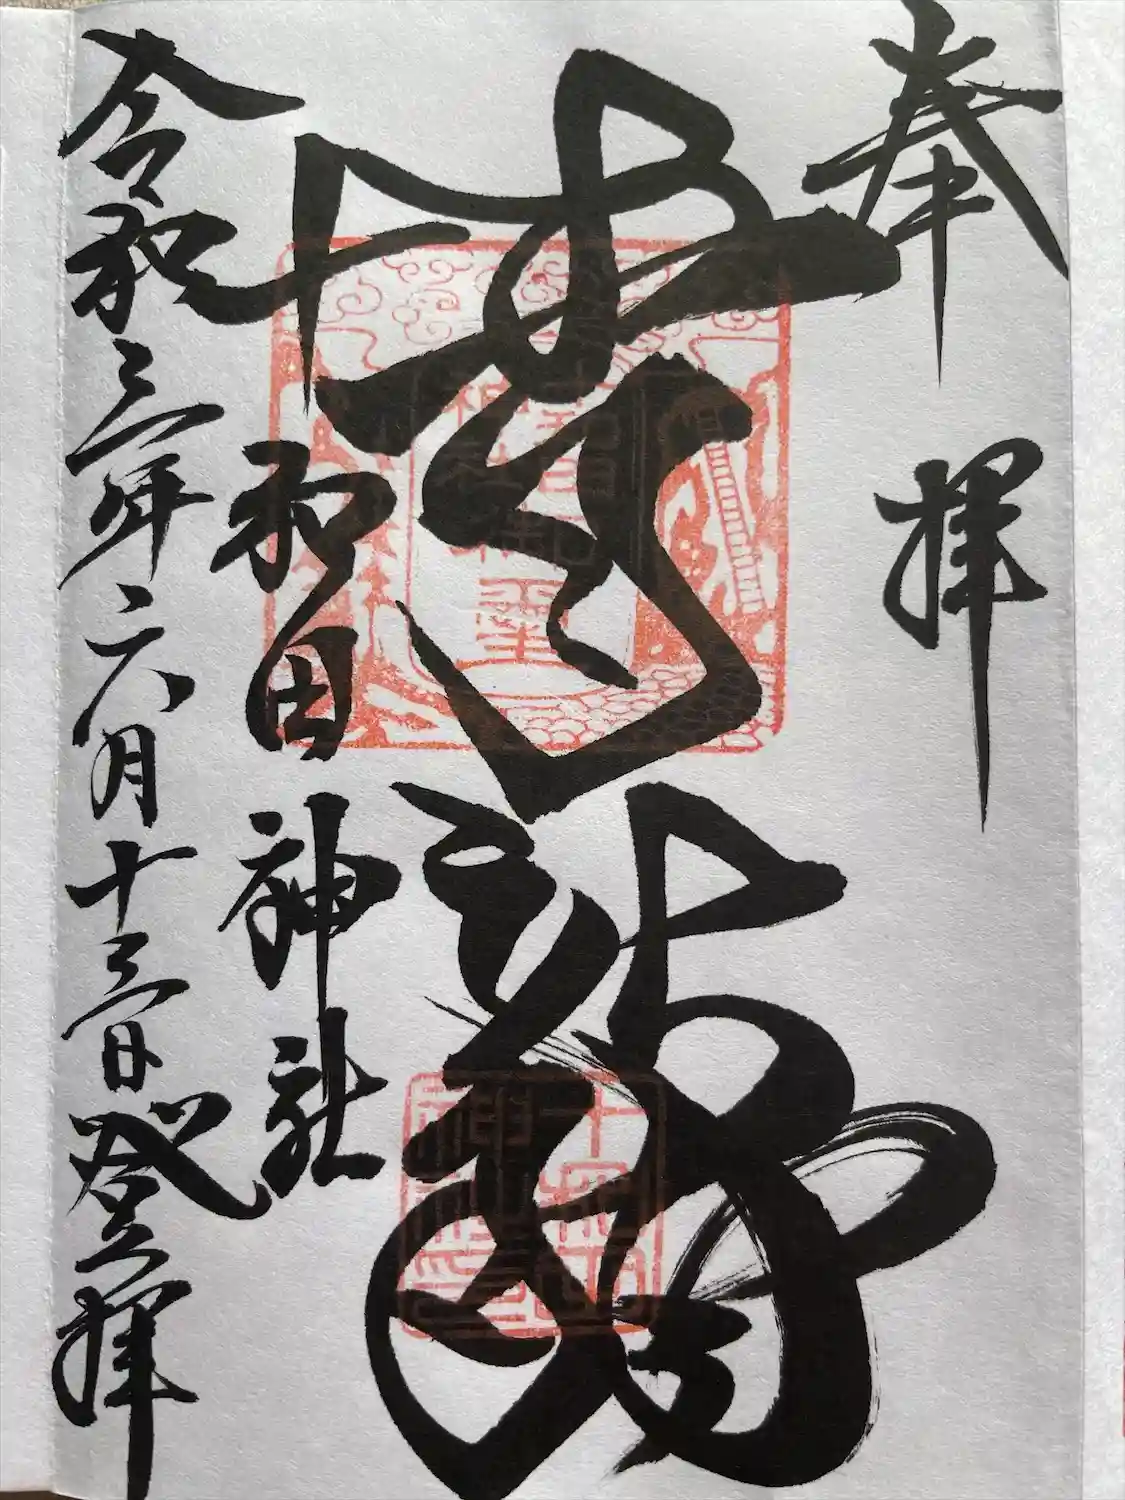 奉拝
龍
十和田神社
令和三年六月十三日登拝